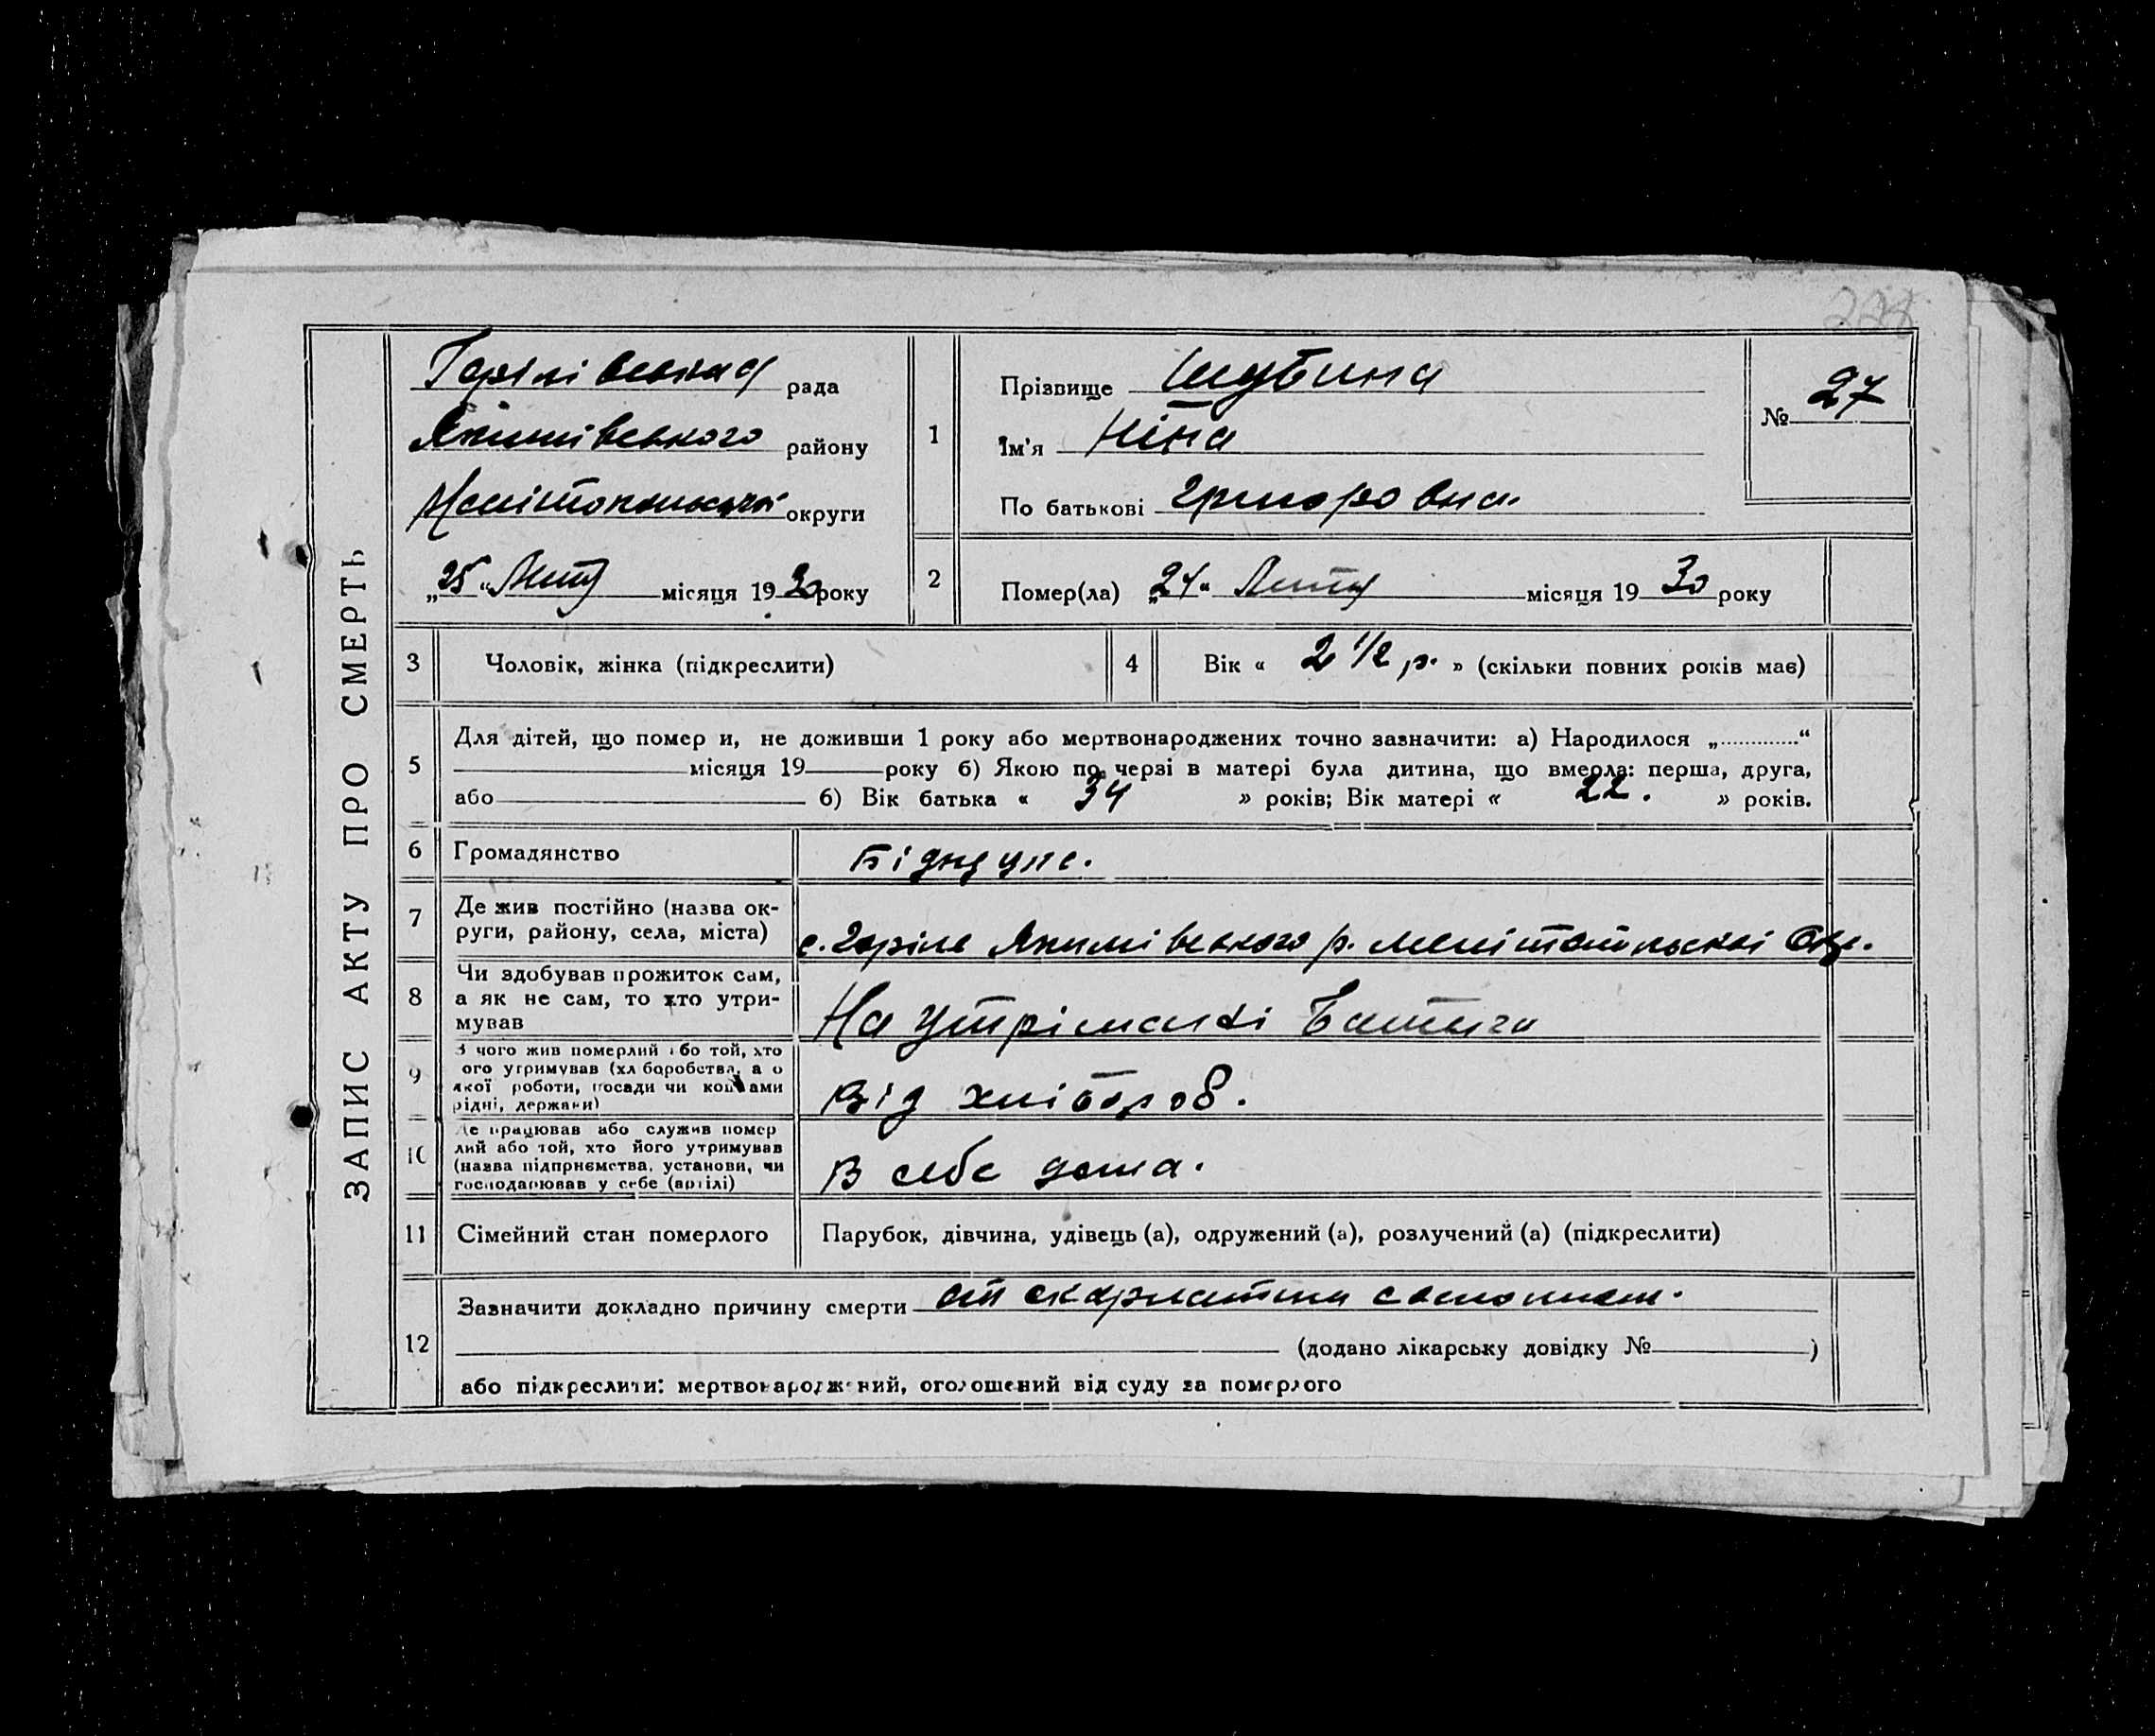 228
ЗАПИС АКТУ ПРО СМЕРТЬ
Горілівська рада
Якимівського району
Мелітопольської округи
„25“ Лют місяця 1930 року
1
Прізвище Шубина
Ім'я Ніна
По батькові Григоровна
№ 27
2
Помер(ла) „24“ Лют місяця 1930 року
3 Чоловік, жінка (підкреслити)
4 Вік « 2 1/2 р. » (скільки повних років має)
5
Для дітей, що помер и, не доживши 1 року або мертвонароджених точно зазначити: а) Народилося „.............“
місяця 19 року б) Якою по черзі в матері була дитина, що вмерла: перша, друга,
або б) Вік батька « 34 » років; Вік матері « 22. » років.
6 Громадянство
7 Де жив постійно (назва ок-
руги, району, села, міста)
с. Горіле Якимівського р. Мелітопільскої Окр.
8 Чи здобував прожиток сам,
а як не сам, то хто утри-
мував
На утріманні Батька
9 З чого жив померлий або той, хто
ого утримував (хліборобства, а о
якої роботи, посади чи коштами
рідні, держави)
Від хлібороб.
10 Де працював або служив помер
лий або той, хто його утримував
(назва підприємства, установи, чи
господарював у себе (артілі)
В себе дома.
11 Сімейний стан померлого
Парубок, дівчина, удівець (а), одружений (а), розлучений (а) (підкреслити)
12
Зазначити докладно причину смерти от скарлатини
(додано лікарську довідку № )
або підкреслити: мертвонароджений, оголошений від суду за померлого